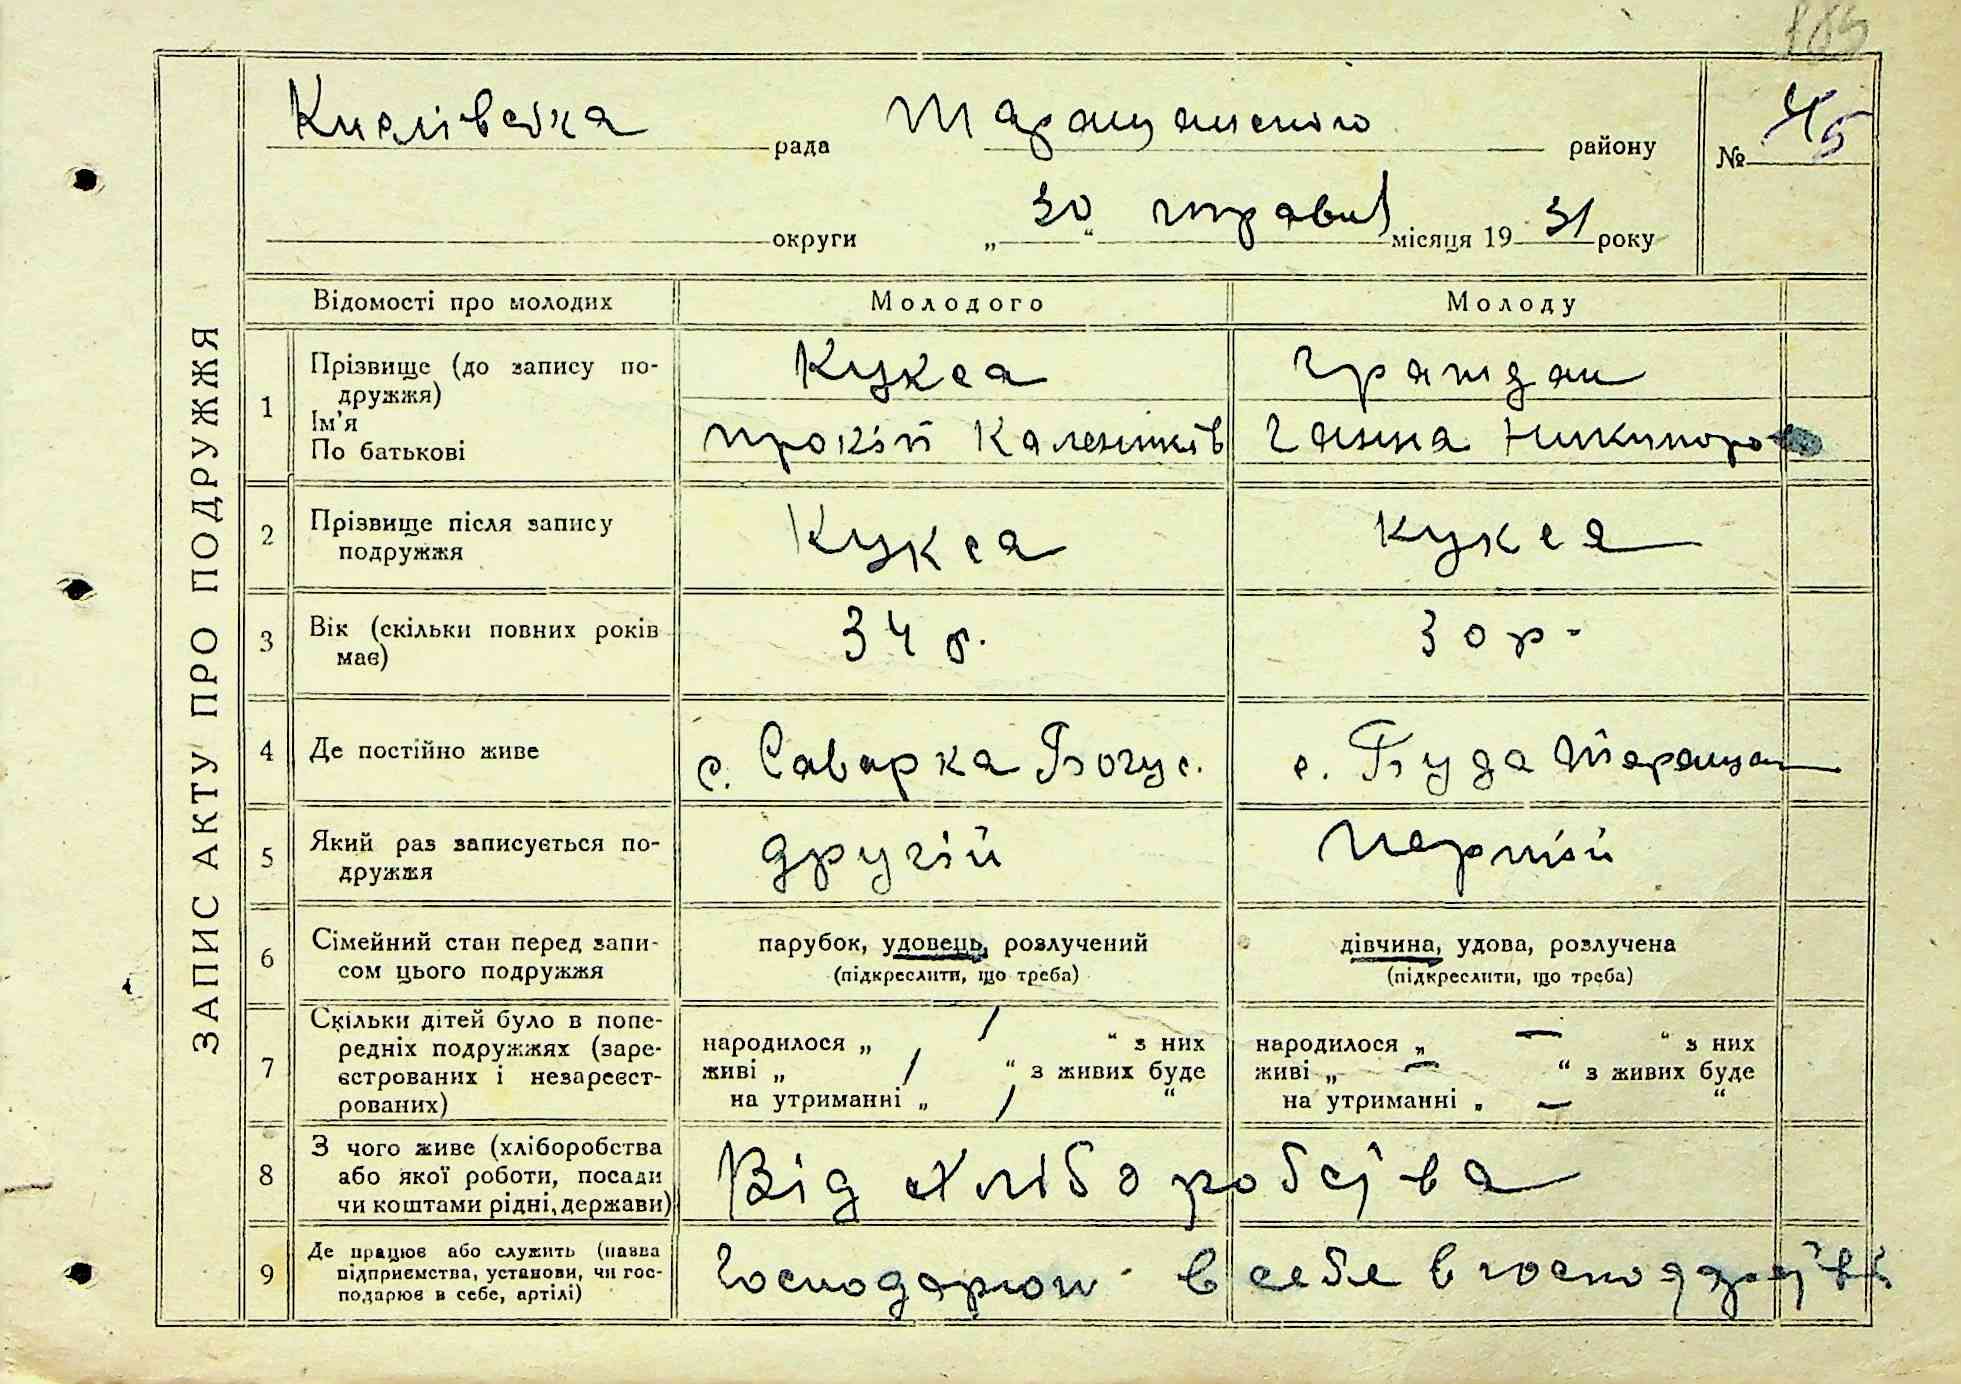 185
Кислівська рада Таращанського району № 45
округи „30“ травня місяця 1931 року
ЗАПИС АКТУ ПРО ПОДРУЖЖЯ
Відомості про молодих Молодого Молоду
1 Прізвище (до запису по-
дружжя)
Ім’я
По батькові
Кукса
Прокіп Каленіків
Граждан
Ганна Никипоро
2 Прізвище після запису
подружжя
Кукса
Кукса
3 Вік (скільки повних років
має)
34 р.
30 р.
4 Де постійно живе
с. Саварка Богус.
с. Буда Таращан
5 Який раз записується по-
дружжя
другій
Перший
6 Сімейний стан перед запи-
сом цього подружжя
парубок, удовець, розлучений
(підкреслити, що треба)
дівчина, удова, розлучена
(підкреслити, що треба)
7 Скільки дітей було в попе-
редніх подружжях (заре-
єстрованих і незареєст-
рованих)
народилося „ / “ з них
живі „ / “ з живих буде
на утриманні „ / “
народилося „ — “ з них
живі „ — “ з живих буде
на утриманні „ — “
8 З чого живе (хліборобства
або якої роботи, посади
чи коштами рідні, держави)
Від хліборобства
9 Де працює або служить (назва
підприємства, установи, чи гос-
подарює в себе, артілі)
Господарюю в себе в господарстві